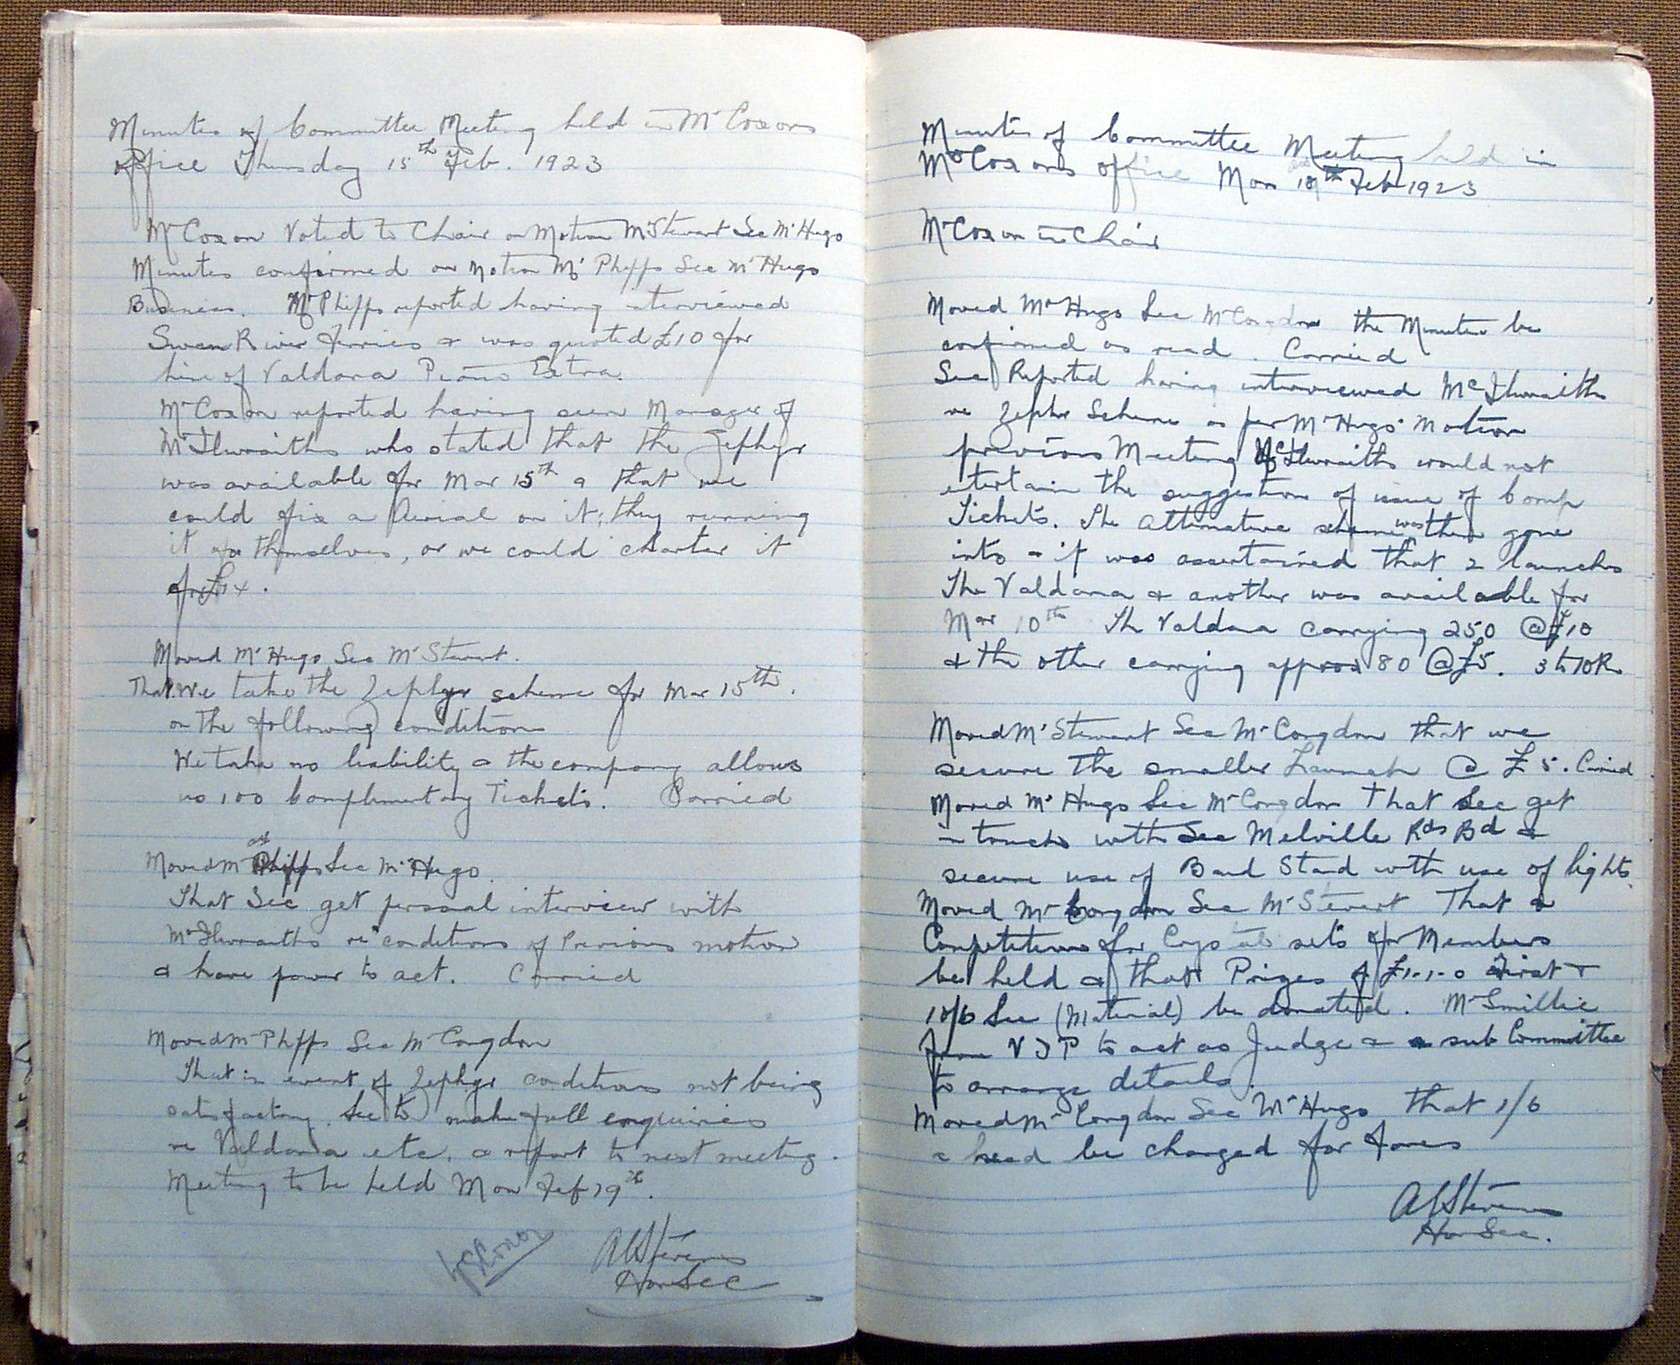 Minutes of Committee Meeting held in Mr Coxons
office Thursday 15th Feb. 1923
Mr Coxon Voted to Chair on Motion Mr Stewart Sec Mr Hugo
Minutes confirmed on Motion Mr Phipps Sec Mr Hugo
Business. Mr Phipps reported having interviewed
Swan River Ferries & was quoted £10 for
hire of Valdana Piano Extra.
Mr Coxon reported having seen Manager of
McIlwraiths who stated that the Zephyr
was available for Mar 15th & that we
could fix a Aerial on it; they running
it for themselves, or we could charter it
for
Moved Mr Hugo Sec Mr Stewart.
That We take the Zephyr scheme for Mar 15th.
on the following condition
We take no liability & the company allows
us 100 Complimentary Tickets. Carried
Moved Mr Phipps Sec Mr Hugo.
That Sec get personal interview with
McIlwraiths re conditions of Previous motion
& have power to act. Carried
Moved Mr Phipps Sec Mr Congdon
That in event of Zephyr conditions not being
satisfactory. Sec to make full enquiries
re Valdana etc. & report to next meeting.
Meeting to be held Mon Feb 19th.
W E Coxon
A E Stevens
Hon Sec
Minutes of Committee Meeting held in
Mr Coxons office Mon 19th Feb 1923
Mr Coxon in Chair
Moved Mr Hugo Sec Mr Congdon the Minutes be
confirmed as read. Carried
Sec Reported having interviewed McIlwraiths
re Zephr Scheme as per Mr Hugo motion
previous Meeting McIlwraiths would not
etertain the suggestion of issue of Comp
Tickets. The alternative scheme was then gone
into & it was ascertained that 2 launches
The Valdana & another was available for
Mar 10th The Valdana carrying 250 @ £10
& the other carrying approx 80 @ £5. 3 to 10 PM
Moved Mr Stewart Sec Mr Congdon that we
secure the smaller Launch @ £5. Carried
Moved Mr Hugo Sec Mr Congdon That Sec get
in touch with Sec Melville Rds Bd &
secure use of Band Stand with use of lights.
Moved Mr Congdon Sec Mr Stewart That a
Competitions for Crystal sets for Members
be held & that Prizes of £1-1-0 First &
10/6 Sec (Material) be donated. Mr Smillie
from V J P to act as Judge & a sub Committee
to arrange details.
Moved Mr Congdon Sec Mr Hugo that 1/6
a head be charged for fares
A E Stevens
Hon Sec.